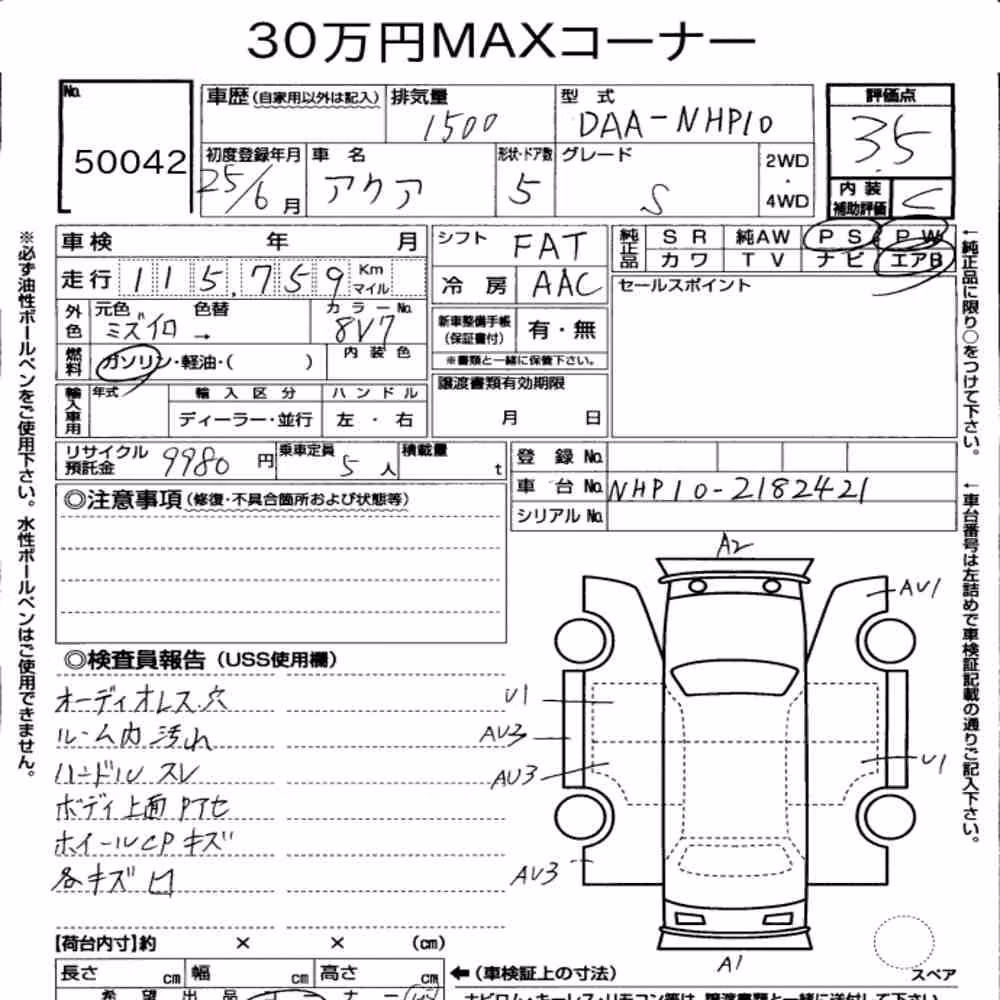 30万円MAXコーナー
No. 50042
車歴(自家用以外は記入)
排気量 1500
型 式 DAA-NHP10
評価点 3.5
初度登録年月 25/6月
車 名 アクア
形状・ドア数 5
グレード S
2WD・4WD
内装補助評価 C
車検 年 月
シフト FAT
純正品 SR 純AW PS PW
カワ TV ナビ エアB
走行 115,759 Km マイル
冷 房 AAC
セールスポイント
外色 元色 ミズイロ 色替 → カラーNo. 8V7
新車整備手帳(保証書付) 有・無
※書類と一緒に保管下さい。
燃料 ガソリン・軽油・( ) 内装色
譲渡書類有効期限 月 日
輸入車用 年式 輸入区分 ハンドル
ディーラー・並行 左・右
リサイクル預託金 9980 円
乗車定員 5 人
積載量 t
登 録 No.
車 台 No. NHP10-2182421
シリアル No.
◎注意事項(修復・不具合箇所および状態等)
◎検査員報告(USS使用欄)
オーディオレス穴
ルーム内 汚れ
ハンドル スレ
ボディ上面 Pアセ
ホイールCP キズ
各キズ凹
A2
AU1
U1
AU3
AU3
U1
AU3
A1
スペア
【荷台内寸】約 × × (cm)
長さ cm 幅 cm 高さ cm
←(車検証上の寸法)
※必ず油性ボールペンをご使用下さい。水性ボールペンはご使用できません。
←純正品に限り○をつけて下さい。
←車台番号は左詰めで車検証記載の通りご記入下さい。